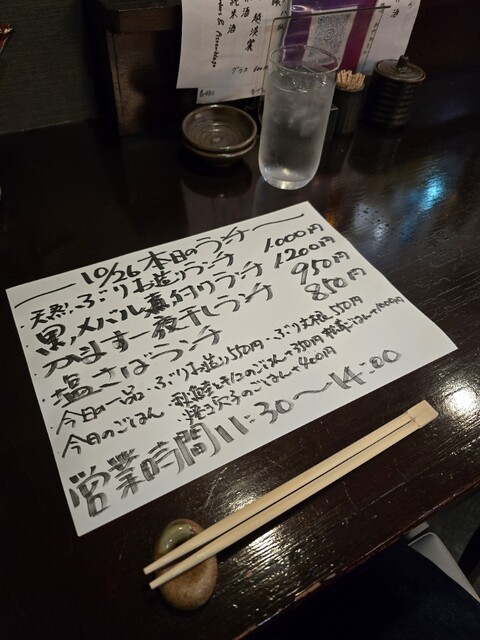 10/26 本日のランチ
・天然ぶりお造りランチ 1.000円
・黒メバル煮付けランチ 1200円
・かます一夜干しランチ 950円
・塩さばランチ 850円
・今日の一品 ・ぶりお造り550円・ぶり大根550円
・今日のごはん ・秋鮭とキノコのごはん+350円
・焼き穴子のごはん+400円
営業時間11:30〜14:00
純米酒
グラス